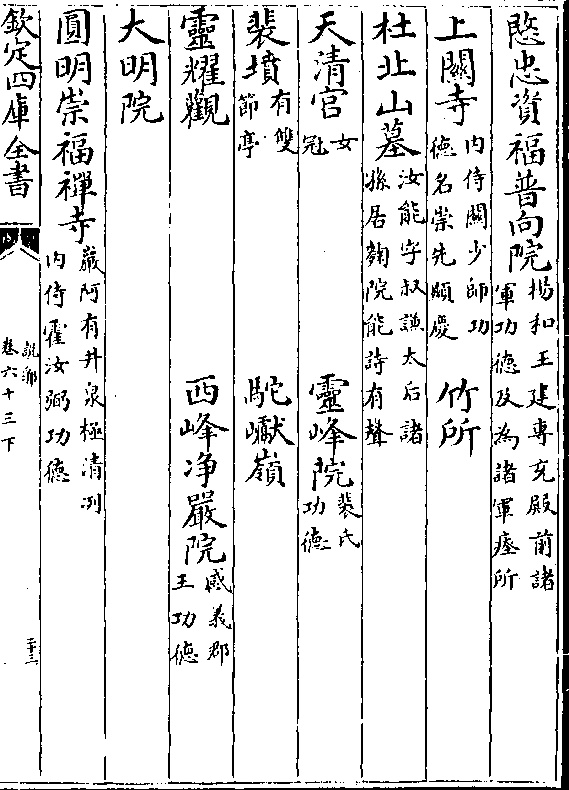 愍忠資福普向院楊和王建專充殿前諸軍功德及為諸軍瘞所
上關寺内侍關少師功德名崇先顯慶　竹所
杜北山墓汝能字叔謙太后諸孫居麴院能詩有聲
天清宫女冠　靈峰院裴氏功德
裴墳有雙節亭　駝巘嶺
靈耀觀　西峰净嚴院咸義郡王功德
大明院
圓明崇福禪寺巖阿有井泉極清冽内侍霍汝弼功德
欽定四庫全書　説郛卷六十三下　二十三